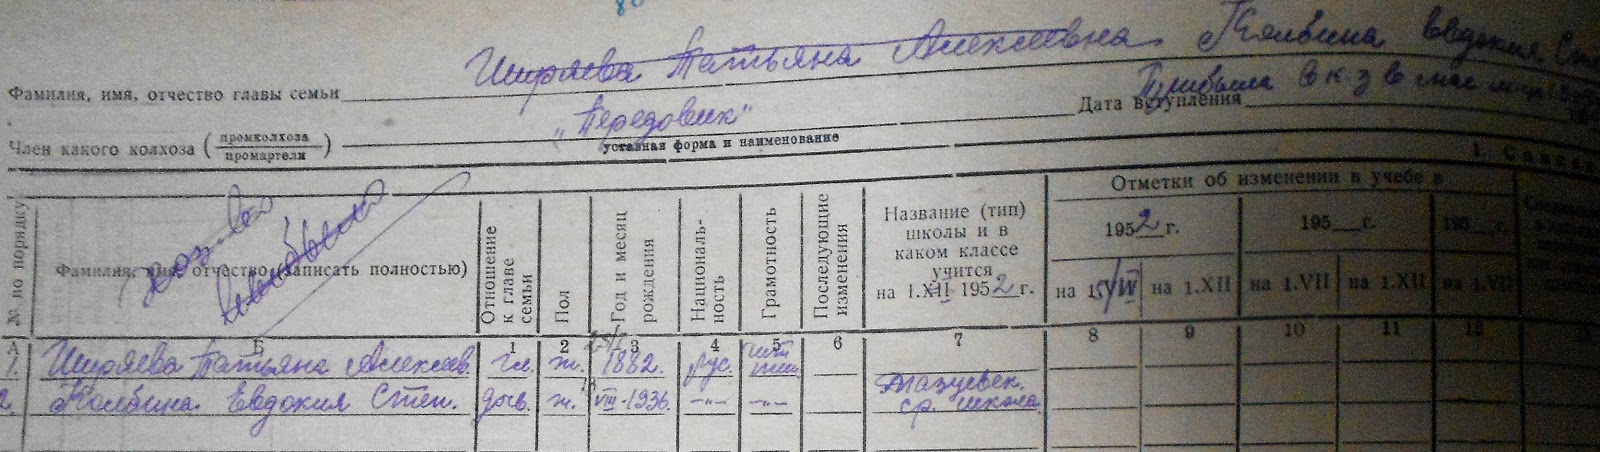 Ширяева Татьяна Алексеевна Колбина Евдокия
Фамилия, имя, отчество главы семьи
Прибыла в к-з в мае
Дата вступления
„Передовик"
Член какого колхоза (промколхоза/промартели)
уставная форма и наименование
Отметки об изменении в учебе в
№ по порядку
Фамилия, имя, отчество (записать полностью)
Отношение к главе семьи
Пол
Год и месяц рождения
Националь-ность
Грамотность
Последующие изменения
Название (тип) школы и в каком классе учится на 1.XII 1952 г.
1952 г. 195 г. 195 г.
на 1. на 1.XII на 1.VII на 1.XII на 1.VII
А Б 1 2 3 4 5 6 7 8 9 10 11 12
1. Ширяева Татьяна Алексеев. гл. ж. 1882. рус.
2. Колбина Евдокия Степ. доч. ж. VIII-1936. -"- -"- ср. школа